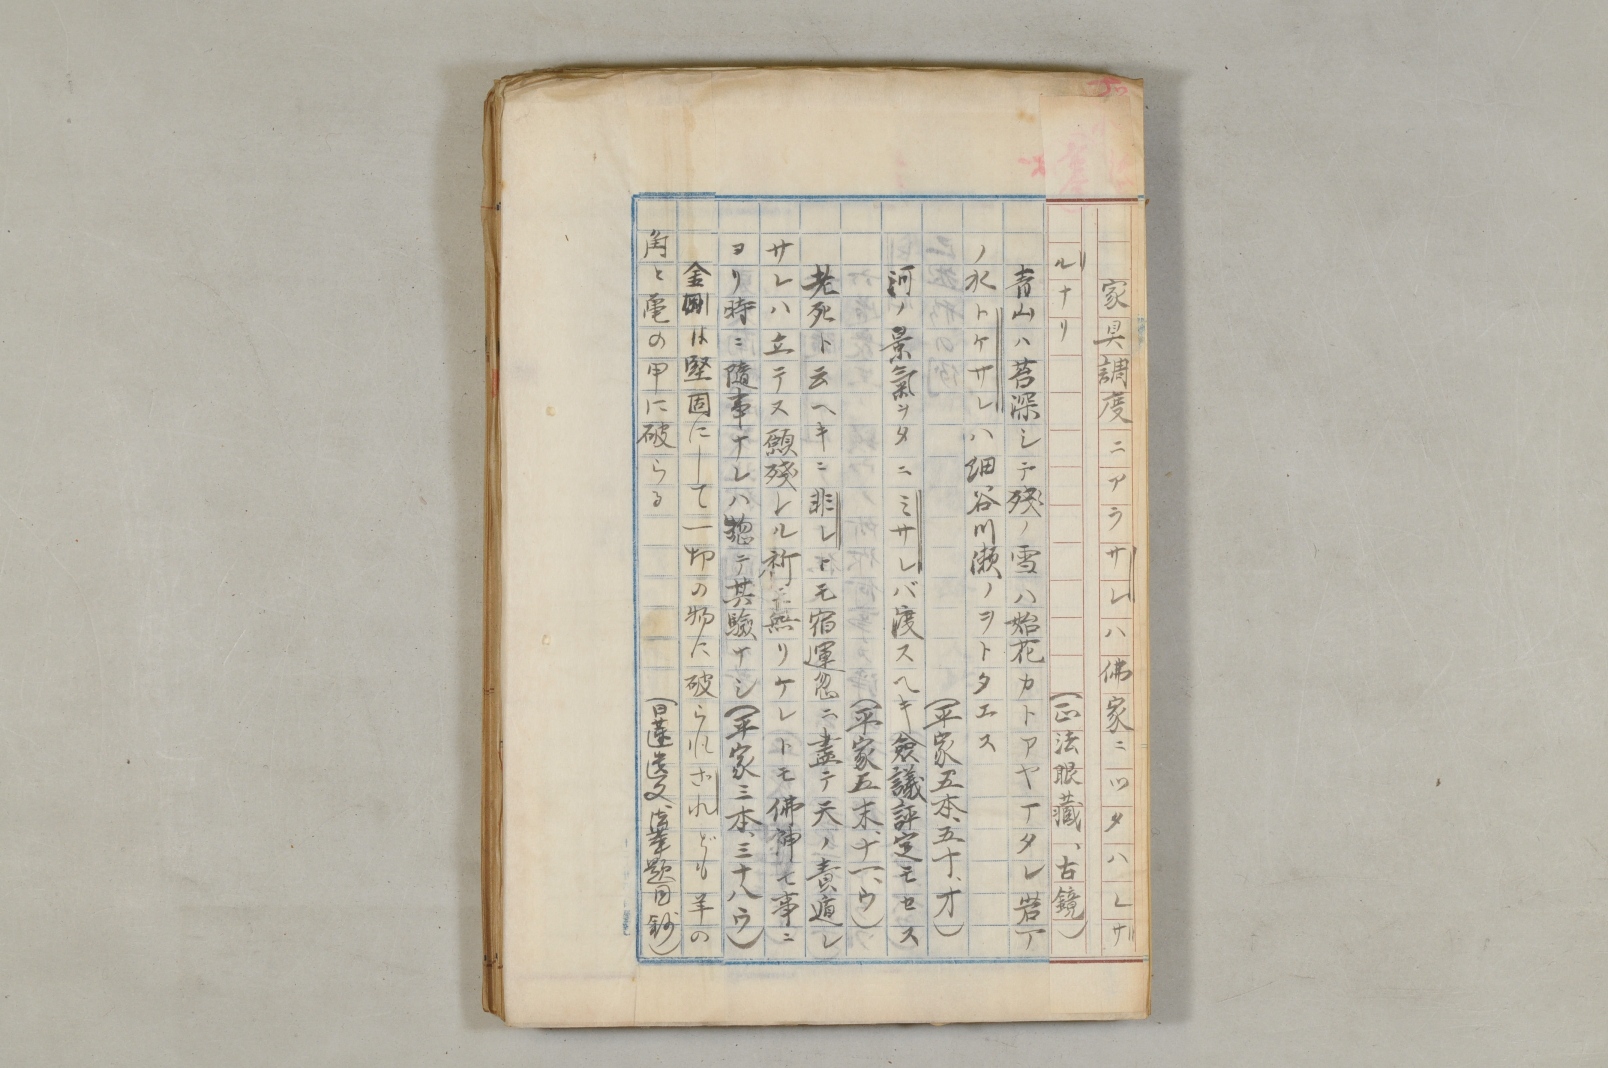 家具調度ニアラサレハ佛家ニツタハレザ
ルナリ　（正法眼藏、古鏡）
青山ハ苔深シテ殘ノ雪ハ始花カトアヤアタレ岩ア
ノ氷トケサレハ細谷川瀬ノヲトタエス
（平家五本、五十、オ）
河ノ景氣ヲタニミサレバ渡スヘキ僉議評定モセス
（平家五末、十一、ウ）
老死ト云ヘキニ非レトモ宿運忽ニ盡テ天ノ責遁レ
サレハ立テス願殘レル祈ニ無リケレトモ佛神モ事ニ
ヨリ時ニ隨事ナレハ惣テ其驗ナシ（平家三本、三十八ウ）
金剛は堅固にして一切の物に破られされども羊の
角と亀の甲に破らる　（日蓮遺文法華題目鈔）